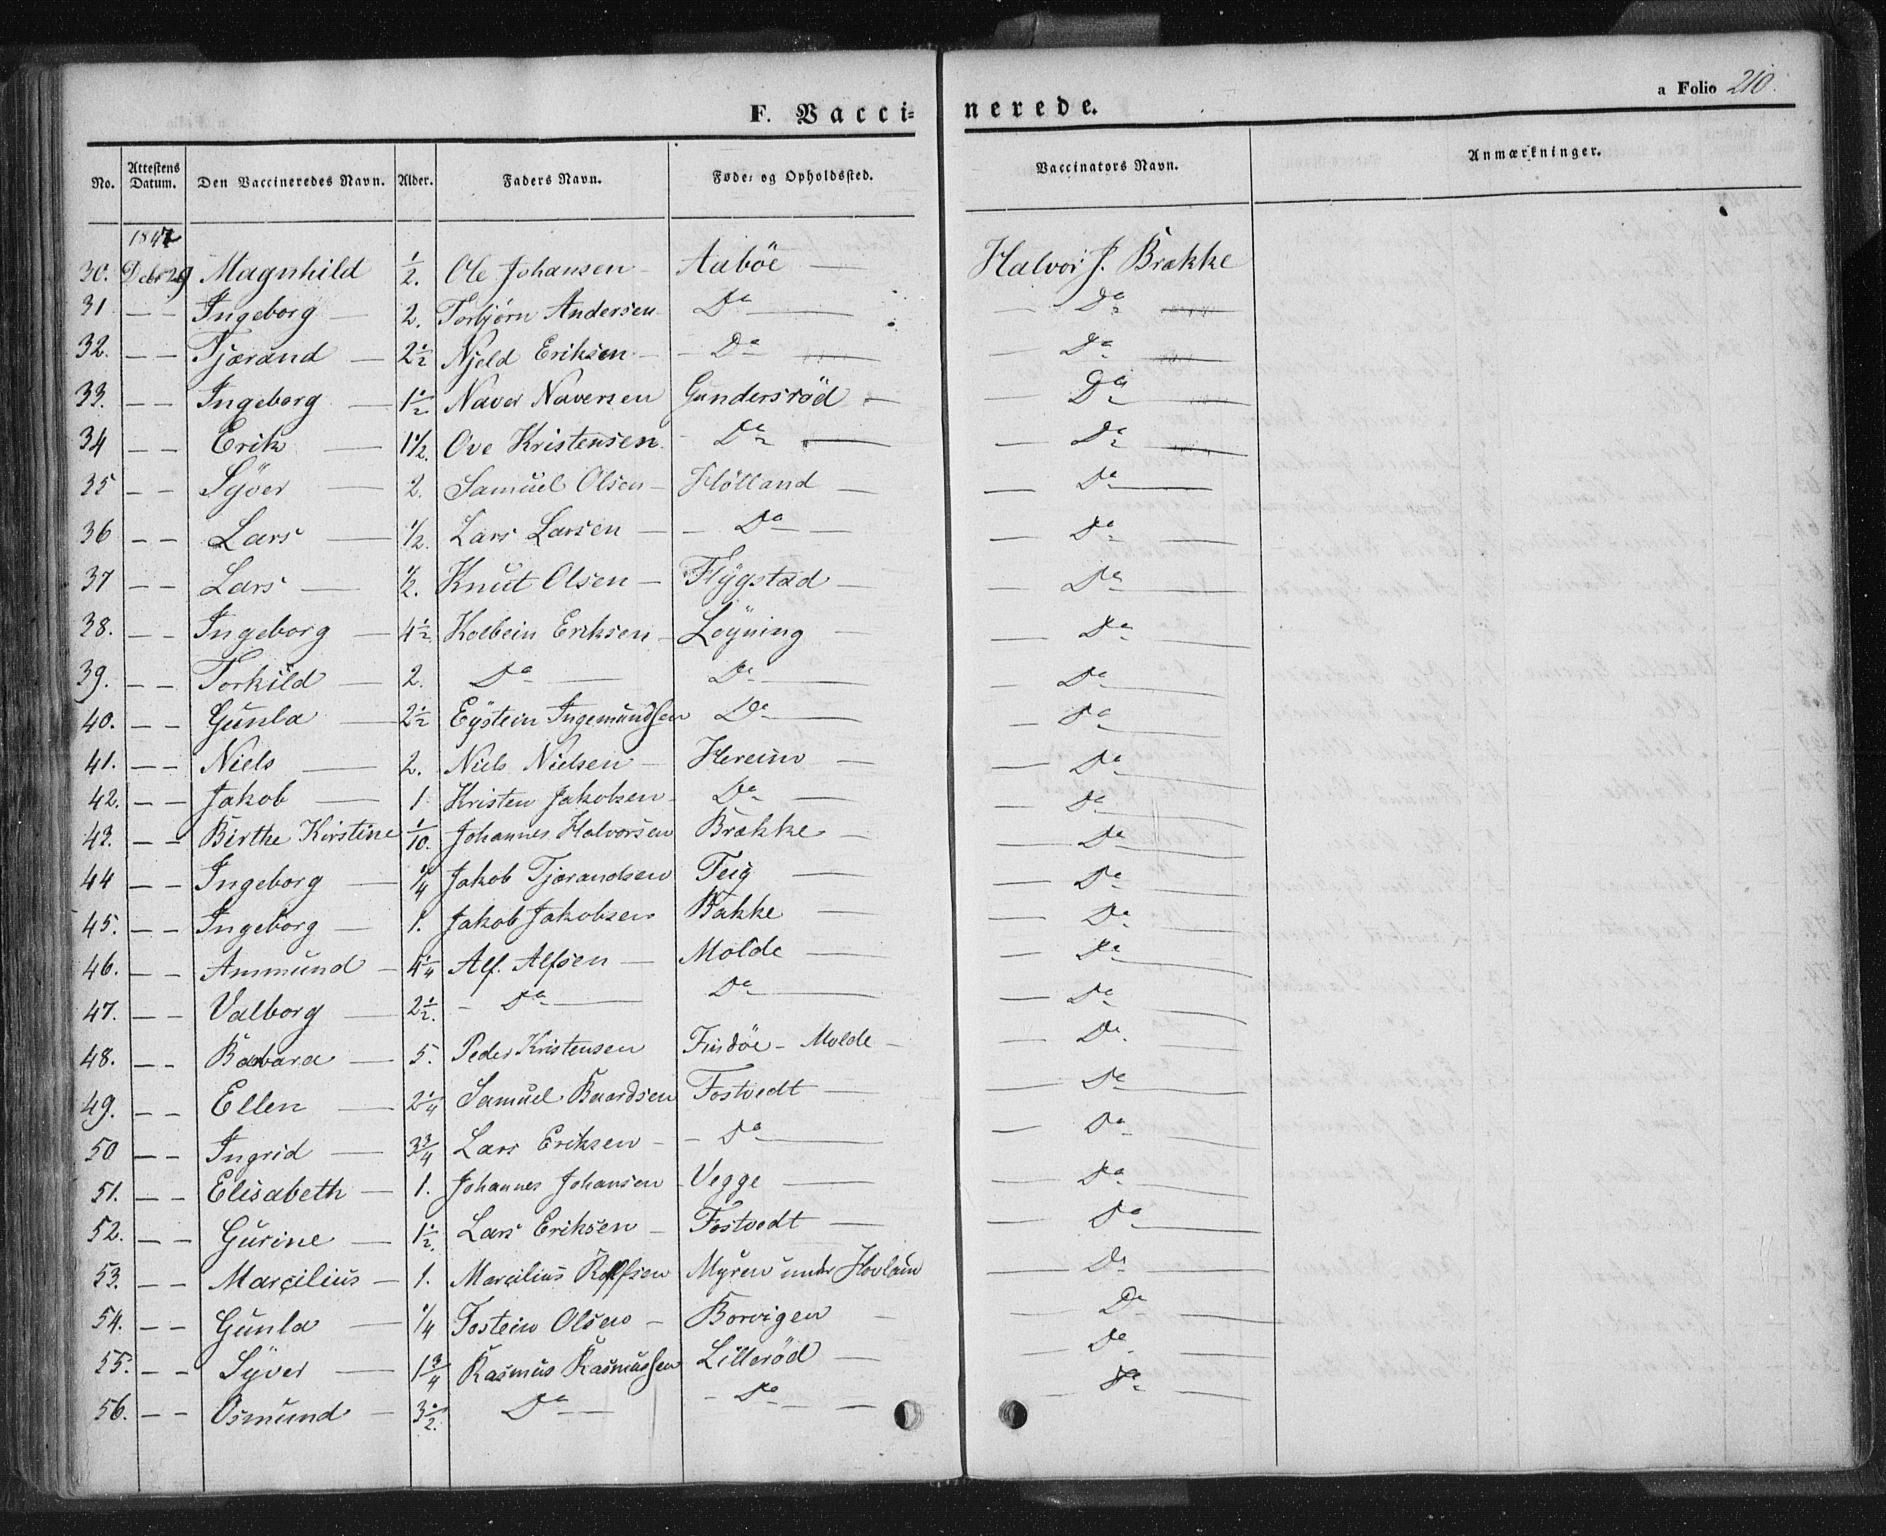 a Folio 210.
F. Vacci= nerede.
No. Attestens Datum. Den Vaccineredes Navn. Alder. Faders Navn. Føde= og Opholdssted. Vaccinators Navn. Anmærkninger.
1847
30. Debr 29 Magnhild ½. Ole Johansen — Aabøe — Halvor J. Brække
31 — — Ingeborg — 2. Torbjørn Andersen Do — — Do —
32. — — Tjærand — 2½ Njeld Eriksen — — Do — — Do —
33. — — Ingeborg — 1½ Naver Naversen Gundersrød — — Do —
34 — — Erik — 1½. Ove Kristensen — Do — — Do —
35 — — Syver — 2. Samuel Olsen — Høtland — — Do —
36 — — Lars — ½. Lars Larsen — — Do — — Do —
37 — — Lars — ½. Knut Olsen — Flÿgstad — — Do —
38. — — Ingeborg — 4½. Kolbein Eriksen — Løyning — — Do —
39. — — Torkild — 2. Do — Do — — Do —
40. — — Gunla — 2½ Eÿstein Ingemundsen Do — — Do —
41. — — Niels — 2. Niels Nielsen — Hereim — — Do —
42. — — Jakob — 1 Kristen Jakobsen — Do — — Do —
43. — — Birthe Kirstine 1/10. Johannes Halvorsen Brække — — Do —
44 — — Ingeborg — ¼ Jakob Tjærandsen Teig — — Do —
45. — — Ingeborg — 1. Jakob Jakobsen Bakke — — Do —
46. — — Ammund — 4¼ Alf. Alfsen — Molde — — Do —
47. — — Valborg — 2½. — Do — Do — — Do —
48. — — Barbara — 5. Peder Kristensen Findøe — Molde — — Do.
49. — — Ellen — 2¼ Samuel Baardsen Fostvedt — — Do —
50 — — Ingrid — 3¾ Lars Eriksen — — Do — — Do —
51. — — Elisabeth — 1. Johannes Johansen Vegge — — Do —
52. — — Gurine — 1½. Lars Eriksen — Fostvedt — — Do —
53. — — Marcilius — 1. Marcilius Rolfsen Myren under Hovland — Do —
54. — — Gunla — ¼ Tostein Olsen — Borvigen — — Do —
55. — — Syver — 1¾ Rasmus Rasmussen Lillerød — — Do —
56. — — Osmund — 3½. Do — — Do — — Do —